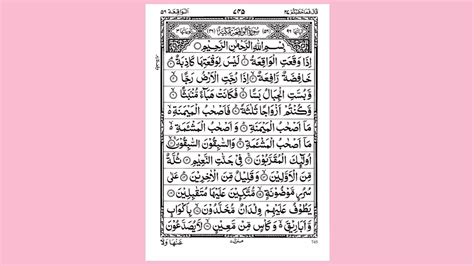 قال فما خطبكم ٢٧
٧٤٥
الواقعة ٥٦
بسم الله الرحمن الرحيم
اذا وقعت الواقعة ۝ ليس لوقعتها كاذبة ۝
خافضة رافعة ۝ اذا رجت الارض رجا ۝
و بست الجبال بسا ۝ فكانت هباء منبثا ۝
و كنتم ازواجا ثلثة ۝ فاصحب الميمنة ۙ
ما اصحب الميمنة ۝ و اصحب المشئمة ۙ
ما اصحب المشئمة ۝ و السبقون السبقون ۝
اولئك المقربون ۝ في جنت النعيم ۝ ثلة
من الاولين ۝ و قليل من الاخرين ۝ على
سرر موضونة ۝ متكئين عليها متقبلين ۝
يطوف عليهم ولدان مخلدون ۝ باكواب
و اباريق ۙ و كاس من معين ۝ لا يصدعون
عنها ولا